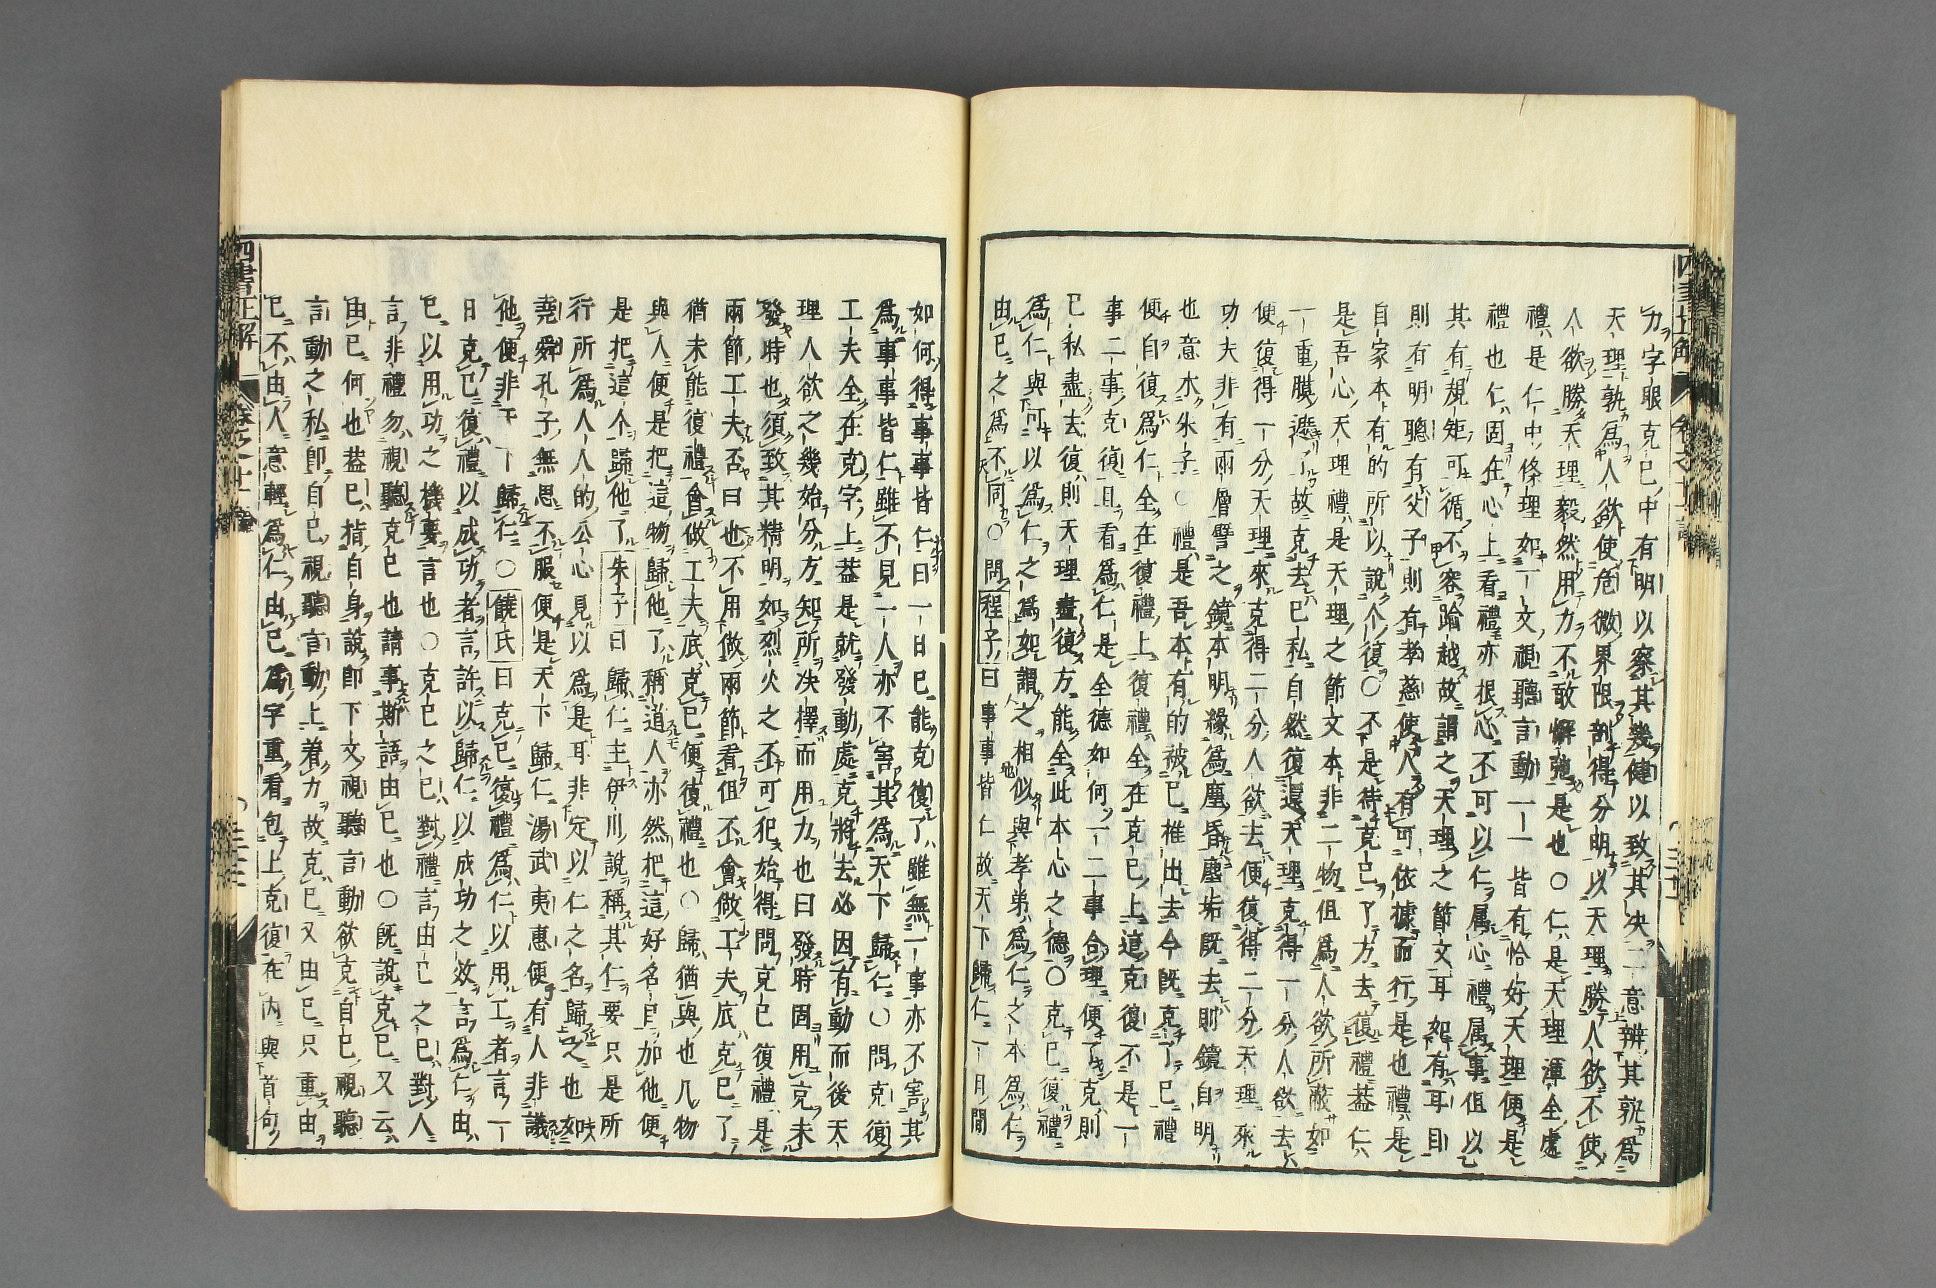 力字眼克己中有明以察其幾健以致其决二意辨其孰爲
天理孰爲人欲使危微界限剖得分明以天理勝人欲不使
人欲勝天理毅然用力不敢懈弛是也○仁是天理渾全處
禮是仁中條理如一文視聽言動一一皆有恰好天理便是
禮也仁固在心上看禮亦根心不可以仁属心禮属事但以
其有規矩可循不容踰越故謂之天理之節文耳如有耳目
則有明聰有父子則有孝慈使人有可依據而行是也禮是
自家本有的所以說个復○不是待克己了方去復禮葢仁
是吾心天理禮是天理之節文本非二物但爲人欲所蔽如
一重膜遮了故克去己私自然復還天理克得一分人欲去
便復得一分天理來克得二分人欲去便復得二分天理來
功夫非有兩層譬之鏡本明緣爲塵昏塵垢既去則鏡自明
也意本朱子○禮是吾本有的被己推出去今既克了己禮
便自復爲仁全在復禮上復禮全在克己上這克復不是一
事二事克復且看爲仁是全德如何一二事合理便了克則
己私盡去復則天理盡復方能全此本心之德○克己復禮
爲仁與可以爲仁之爲如謂之相似與孝弟爲仁之本爲仁
由己之爲不同○問程子曰事事皆仁故天下歸仁一日間
如何得事事皆仁曰一日己能克復了雖無一事亦不害其
爲事事皆仁雖不見一人亦不害其爲天下歸仁○問克復
工夫全在克字上葢是就發動處克將去必因有動而後天
理人欲之幾始分方知所决擇而用力也曰發時固用克未
發時也須致其精明如烈火之不可犯始得問克己復禮是
兩節工夫否曰也不用做兩節看但不會做工夫底克己了
猶未能復禮會做工夫底克己便復禮也○歸猶與也凡物
與人便是把這物歸他了稱道人亦然把這好名目加他便
是把這个歸他了朱子曰歸仁主伊川說稱其仁要只是所
行所爲人人的公心見以爲是耳非定以仁之名歸之也如
堯舜孔子無思不服便是天下歸仁湯武夷惠便有人非議
他便非天下歸仁○饒氏曰克己復禮爲仁以用工者言一
日克己復禮以成功者言許以歸仁以成功之效言爲仁由
己以用功之機要言也○克己之己對禮言由己之己對人
言非禮勿視聽克己也請事斯語由己也○既說克己又云
由己何也葢己指自身說即下文視聽言動欲克自己視聽
言動之私即自己視聽言動上着力故克己又由己只重由
己不由人意輕爲仁由己爲字重看包上克復在內與首句
四書正解
卷之十
三三